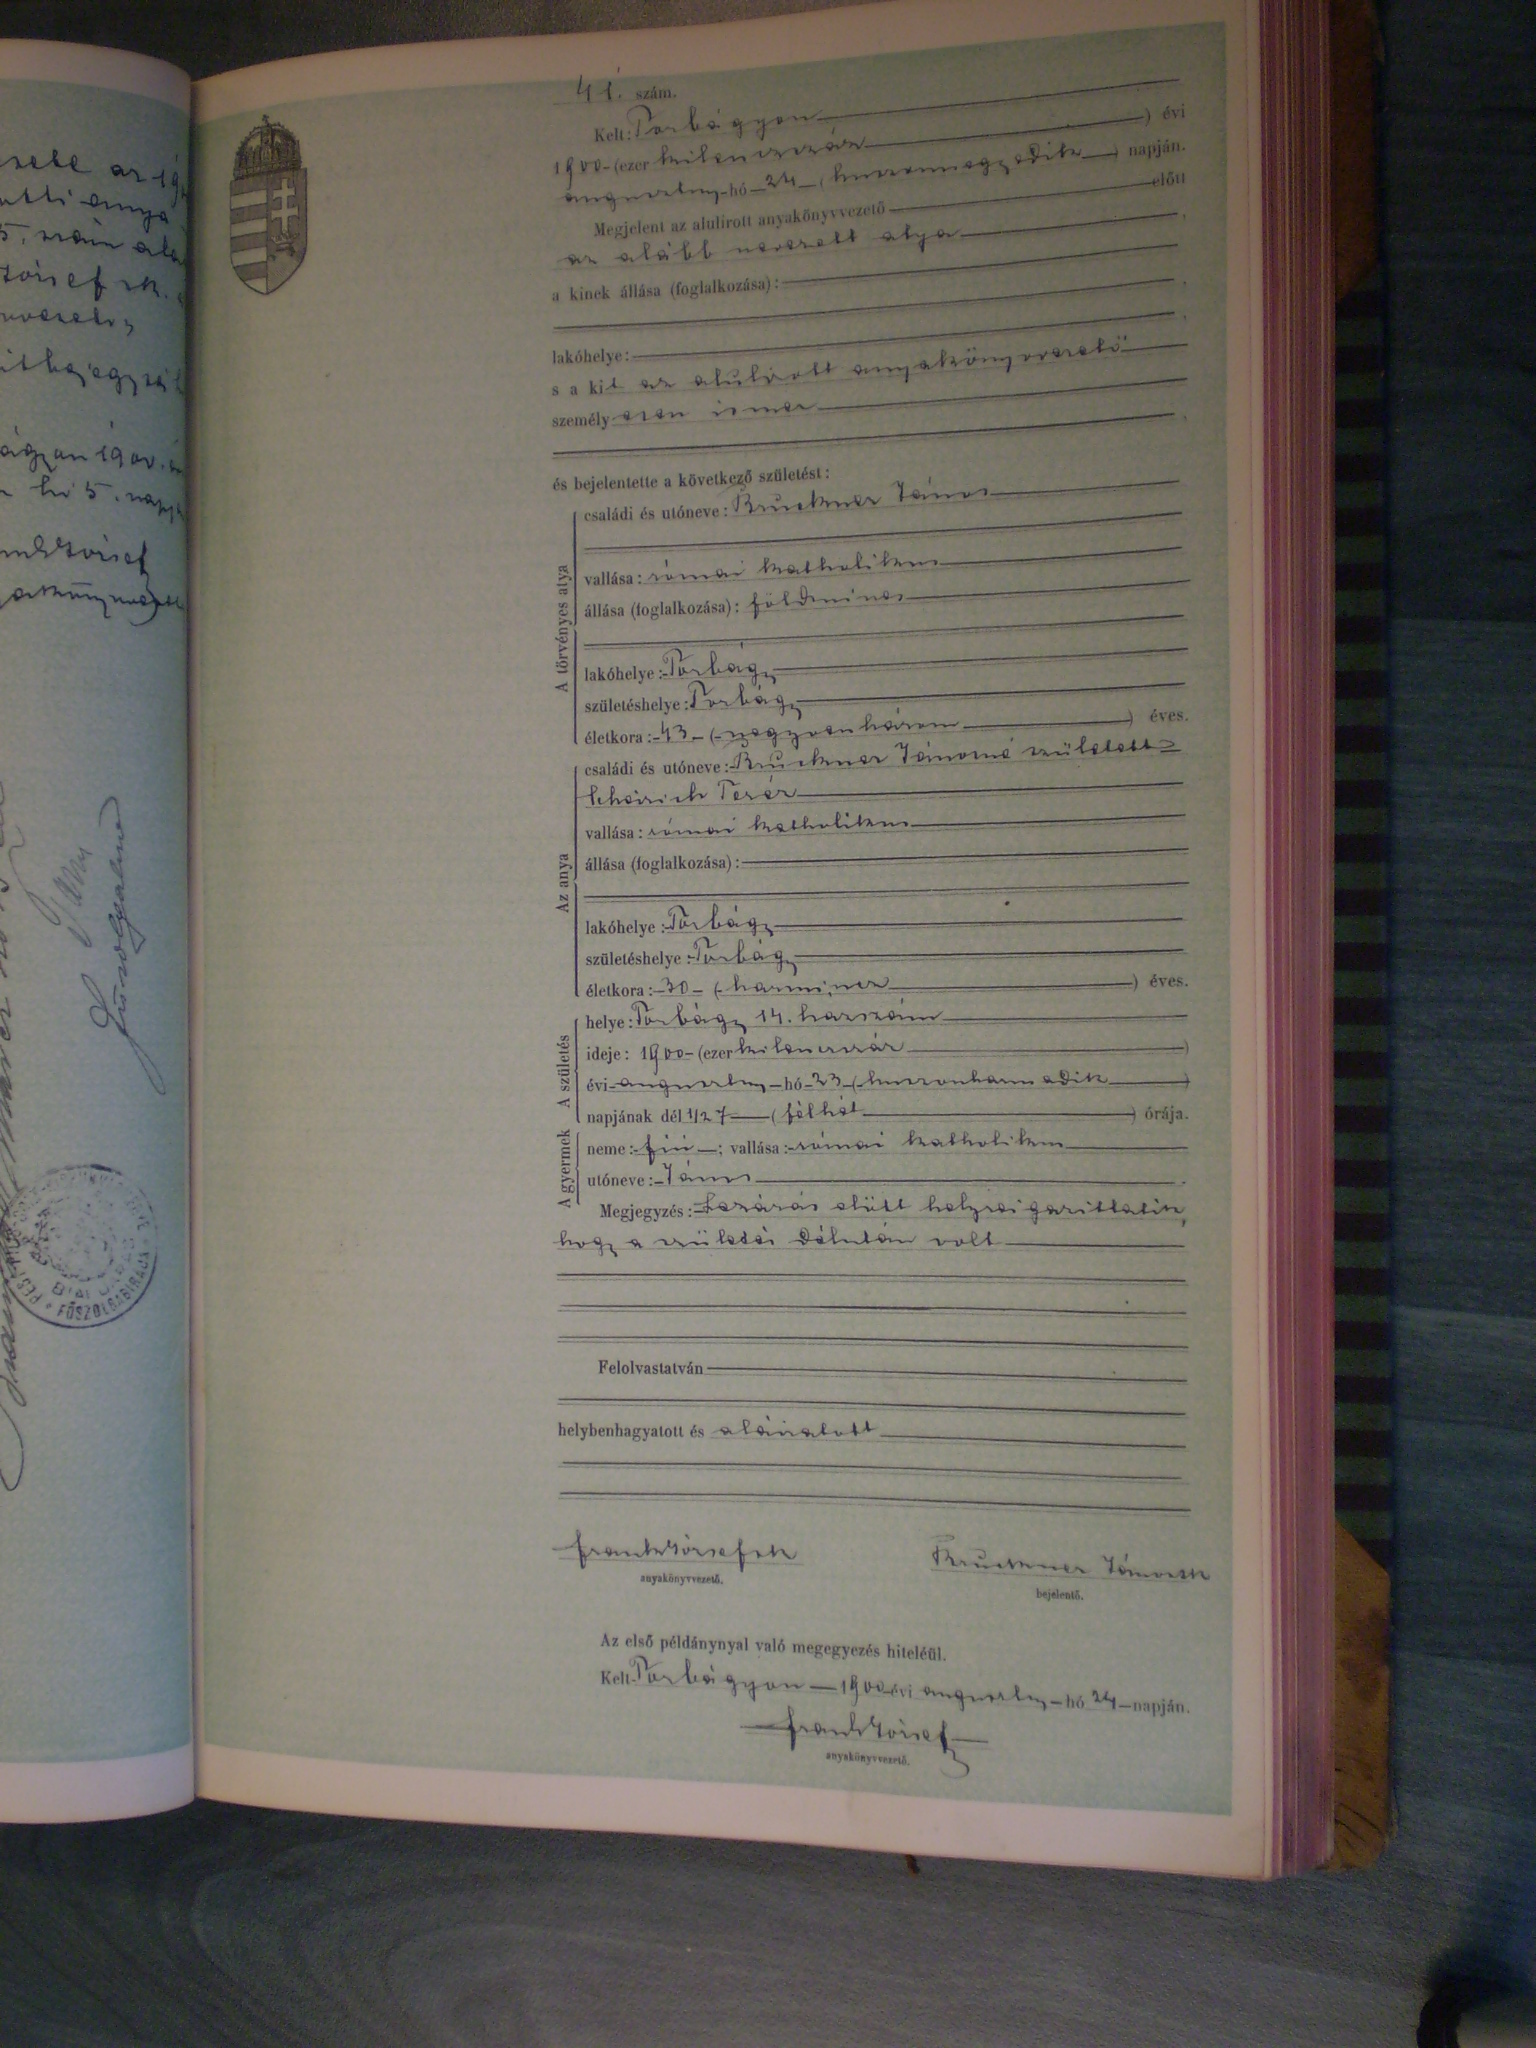 41. szám.
Kelt: Torbágyon
1900 (ezer kilenczszáz) évi
augusztus hó 24 (huszonnegyedik) napján.
Megjelent az alulírott anyakönyvvezető előtt
az alább nevezett atya
a kinek állása (foglalkozása):
lakóhelye:
s a kit az alulirott anyakönyvvezető
személyesen ismer
és bejelentette a következő születést:
A törvényes atya
családi és utóneve: Bruckner János
vallása: római katholikus
állása (foglalkozása): földmives
lakóhelye: Torbágy
születéshelye: Torbágy
életkora: 43 (negyvenhárom) éves.
Az anya
családi és utóneve: Bruckner Jánosné született
Scheirich Teréz
vallása: római katholikus
állása (foglalkozása):
lakóhelye: Torbágy
születéshelye: Torbágy
életkora: 30 (harmincz) éves.
A születés
helye: Torbágy 14. házszám
ideje: 1900 (ezer kilenczszáz)
évi augusztus hó 23 (huszonharmadik)
napjának dél 1/2 7 (félhét) órája.
A gyermek
neme: fiú; vallása: római katholikus
utóneve: János
Megjegyzés: Lezárás előtt helyreigazittatik,
hogy a születés délután volt
Felolvastatván
helybenhagyatott és aláiratott
Frank József sk
anyakönyvvezető.
Bruckner János sk
bejelentő.
Az első példánynyal való megegyezés hiteléül.
Kelt Torbágyon 1900 évi augusztus hó 24 napján.
Frank József
anyakönyvvezető.